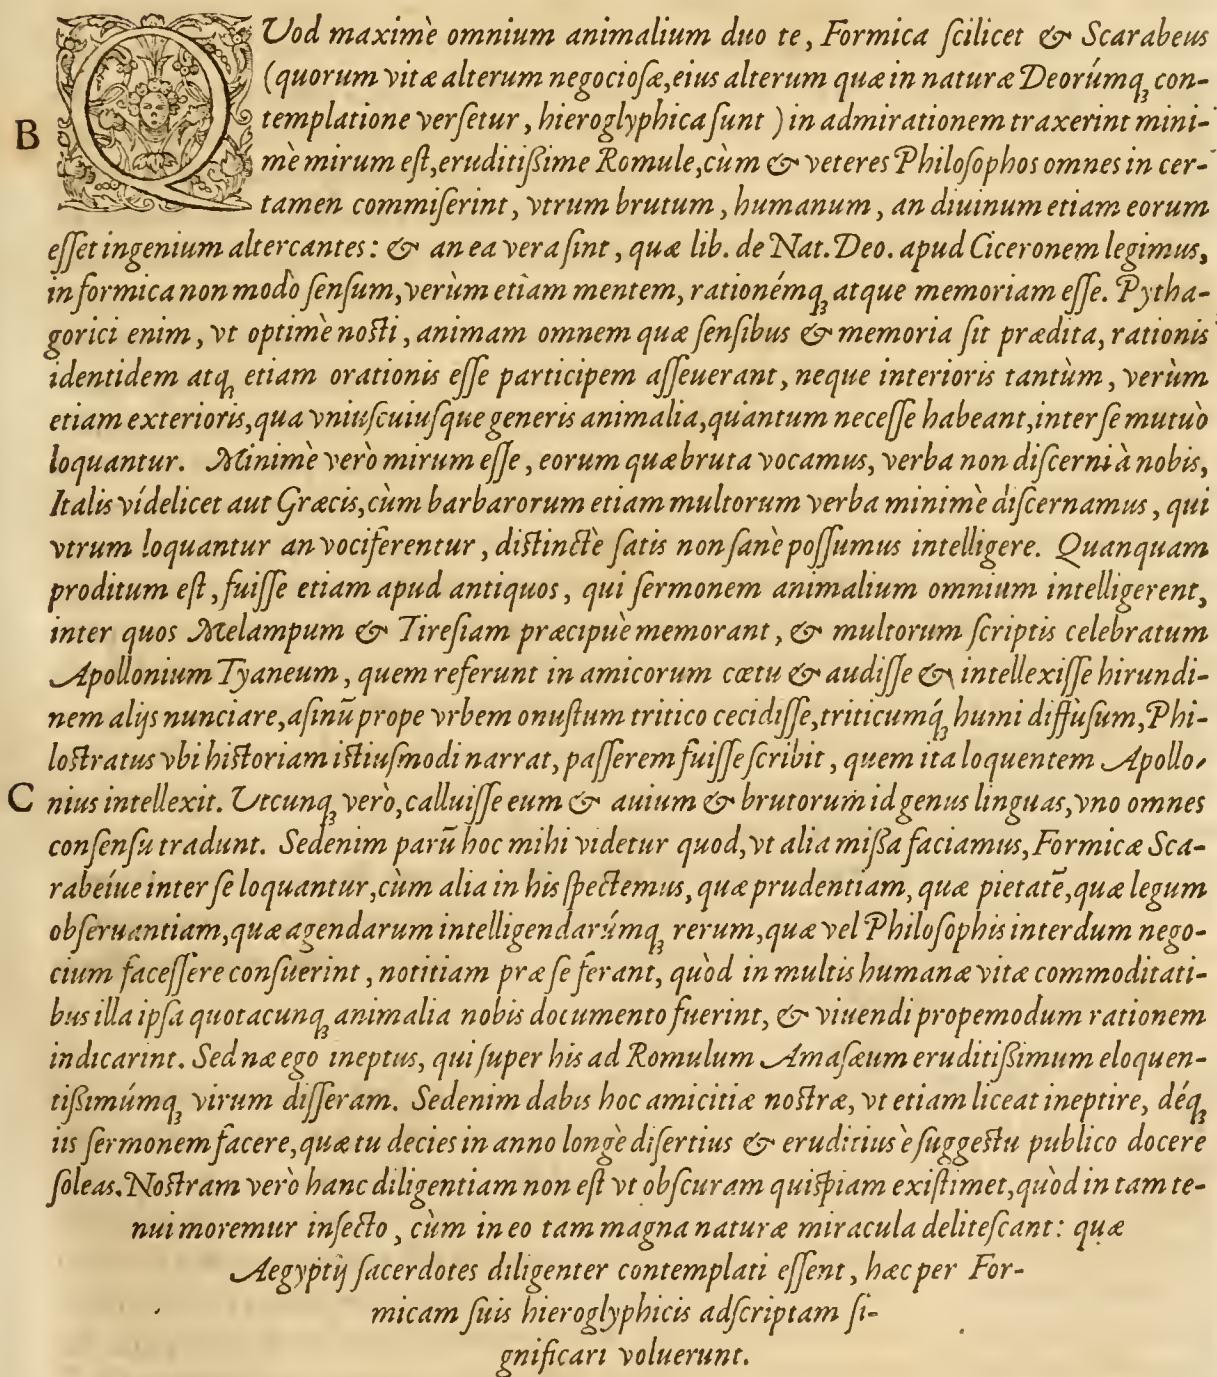 QUod maximè omnium animalium duo te, Formica ſcilicet & Scarabeus
(quorum vitæ alterum negocioſæ, eius alterum quæ in naturæ Deorúmq; con-
B templatione verſetur, hieroglyphica ſunt) in admirationem traxerint mini-
mè mirum eſt, eruditiſsime Romule, cùm & veteres Philoſophos omnes in cer-
tamen commiſerint, vtrum brutum, humanum, an diuinum etiam eorum
eſſet ingenium altercantes: & an ea vera ſint, quæ lib. de Nat. Deo. apud Ciceronem legimus,
in formica non modò ſenſum, verùm etiam mentem, rationémq; atque memoriam eſſe. Pytha-
gorici enim, vt optimè noſti, animam omnem quæ ſenſibus & memoria ſit prædita, rationis
identidem atq; etiam orationis eſſe participem aſſeuerant, neque interioris tantùm, verùm
etiam exterioris, qua vniuſcuiuſque generis animalia, quantum neceſſe habeant, inter ſe mutuò
loquantur. Minimè verò mirum eſſe, eorum quæ bruta vocamus, verba non diſcerni à nobis,
Italis videlicet aut Græcis, cùm barbarorum etiam multorum verba minimè diſcernamus, qui
vtrum loquantur an vociferentur, diſtinctè ſatis non ſanè poſſumus intelligere. Quanquam
proditum eſt, fuiſſe etiam apud antiquos, qui ſermonem animalium omnium intelligerent,
inter quos Melampum & Tireſiam præcipuè memorant, & multorum ſcriptis celebratum
Apollonium Tyaneum, quem referunt in amicorum cœtu & audiſſe & intellexiſſe hirundi-
nem alijs nunciare, aſinū prope vrbem onuſtum tritico cecidiſſe, triticumq́; humi diffuſum, Phi-
loſtratus vbi hiſtoriam iſtiuſmodi narrat, paſſerem fuiſſe ſcribit, quem ita loquentem Apollo-
C nius intellexit. Utcunq; verò, calluiſſe eum & auium & brutorum id genus linguas, vno omnes
conſenſu tradunt. Sedenim parū hoc mihi videtur quod, vt alia miſſa faciamus, Formicæ Sca-
rabeíue inter ſe loquantur, cùm alia in his ſpectemus, quæ prudentiam, quæ pietatē, quæ legum
obſeruantiam, quæ agendarum intelligendarúmq; rerum, quæ vel Philoſophis interdum nego-
cium faceſſere conſuerint, notitiam præ ſe ferant, quòd in multis humanæ vitæ commoditati-
bus illa ipſa quotacunq; animalia nobis documento fuerint, & viuendi propemodum rationem
indicarint. Sed næ ego ineptus, qui ſuper his ad Romulum Amaſæum eruditiſsimum eloquen-
tiſsimúmq; virum diſſeram. Sedenim dabis hoc amicitiæ noſtræ, vt etiam liceat ineptire, déq;
iis ſermonem facere, quæ tu decies in anno longè diſertius & eruditius è ſuggeſtu publico docere
ſoleas. Noſtram verò hanc diligentiam non eſt vt obſcuram quiſpiam exiſtimet, quòd in tam te-
nui moremur inſecto, cùm in eo tam magna naturæ miracula deliteſcant: quæ
Aegyptij ſacerdotes diligenter contemplati eſſent, hæc per For-
micam ſuis hieroglyphicis adſcriptam ſi-
gnificari voluerunt.